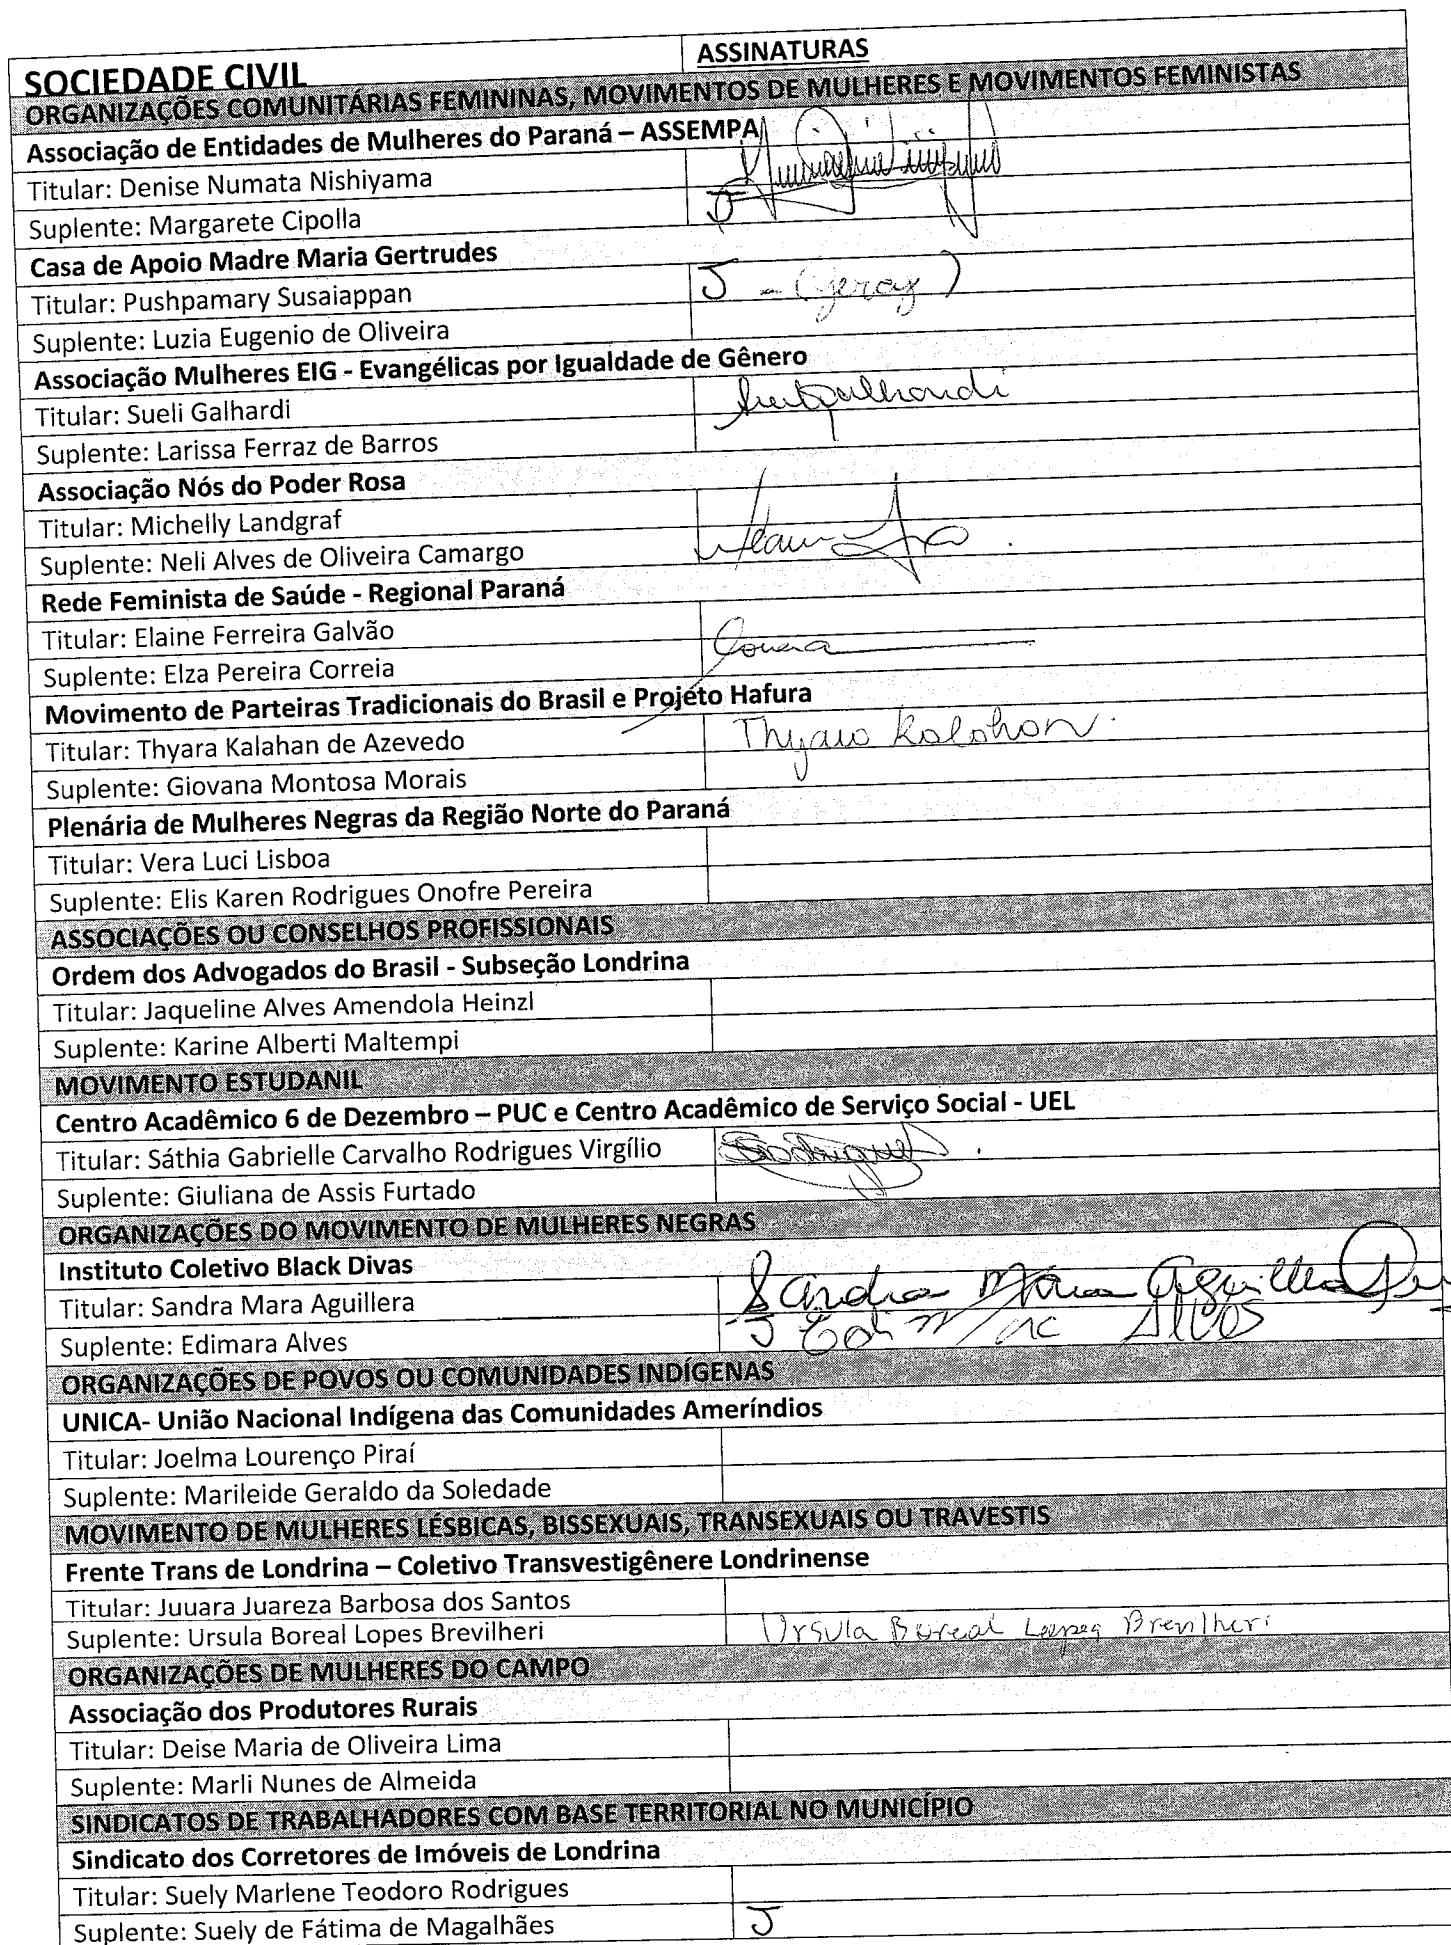 SOCIEDADE CIVIL
ASSINATURAS
ORGANIZAÇÕES COMUNITÁRIAS FEMININAS, MOVIMENTOS DE MULHERES E MOVIMENTOS FEMINISTAS
Associação de Entidades de Mulheres do Paraná – ASSEMPA
Titular: Denise Numata Nishiyama
Suplente: Margarete Cipolla J
Casa de Apoio Madre Maria Gertrudes
Titular: Pushpamary Susaiappan J
Suplente: Luzia Eugenio de Oliveira
Associação Mulheres EIG - Evangélicas por Igualdade de Gênero
Titular: Sueli Galhardi
Suplente: Larissa Ferraz de Barros
Associação Nós do Poder Rosa
Titular: Michelly Landgraf
Suplente: Neli Alves de Oliveira Camargo
Rede Feminista de Saúde - Regional Paraná
Titular: Elaine Ferreira Galvão
Suplente: Elza Pereira Correia
Movimento de Parteiras Tradicionais do Brasil e Projeto Hafura
Titular: Thyara Kalahan de Azevedo Thyara Kalahan
Suplente: Giovana Montosa Morais
Plenária de Mulheres Negras da Região Norte do Paraná
Titular: Vera Luci Lisboa
Suplente: Elis Karen Rodrigues Onofre Pereira
ASSOCIAÇÕES OU CONSELHOS PROFISSIONAIS
Ordem dos Advogados do Brasil - Subseção Londrina
Titular: Jaqueline Alves Amendola Heinzl
Suplente: Karine Alberti Maltempi
MOVIMENTO ESTUDANIL
Centro Acadêmico 6 de Dezembro – PUC e Centro Acadêmico de Serviço Social - UEL
Titular: Sáthia Gabrielle Carvalho Rodrigues Virgílio
Suplente: Giuliana de Assis Furtado
ORGANIZAÇÕES DO MOVIMENTO DE MULHERES NEGRAS
Instituto Coletivo Black Divas
Titular: Sandra Mara Aguillera Sandra Mara Aguillera
Suplente: Edimara Alves J Edimara Alves
ORGANIZAÇÕES DE POVOS OU COMUNIDADES INDÍGENAS
UNICA- União Nacional Indígena das Comunidades Ameríndios
Titular: Joelma Lourenço Piraí
Suplente: Marileide Geraldo da Soledade
MOVIMENTO DE MULHERES LÉSBICAS, BISSEXUAIS, TRANSEXUAIS OU TRAVESTIS
Frente Trans de Londrina – Coletivo Transvestigênere Londrinense
Titular: Juuara Juareza Barbosa dos Santos
Suplente: Ursula Boreal Lopes Brevilheri Ursula Boreal Lopes Brevilheri
ORGANIZAÇÕES DE MULHERES DO CAMPO
Associação dos Produtores Rurais
Titular: Deise Maria de Oliveira Lima
Suplente: Marli Nunes de Almeida
SINDICATOS DE TRABALHADORES COM BASE TERRITORIAL NO MUNICÍPIO
Sindicato dos Corretores de Imóveis de Londrina
Titular: Suely Marlene Teodoro Rodrigues
Suplente: Suely de Fátima de Magalhães J